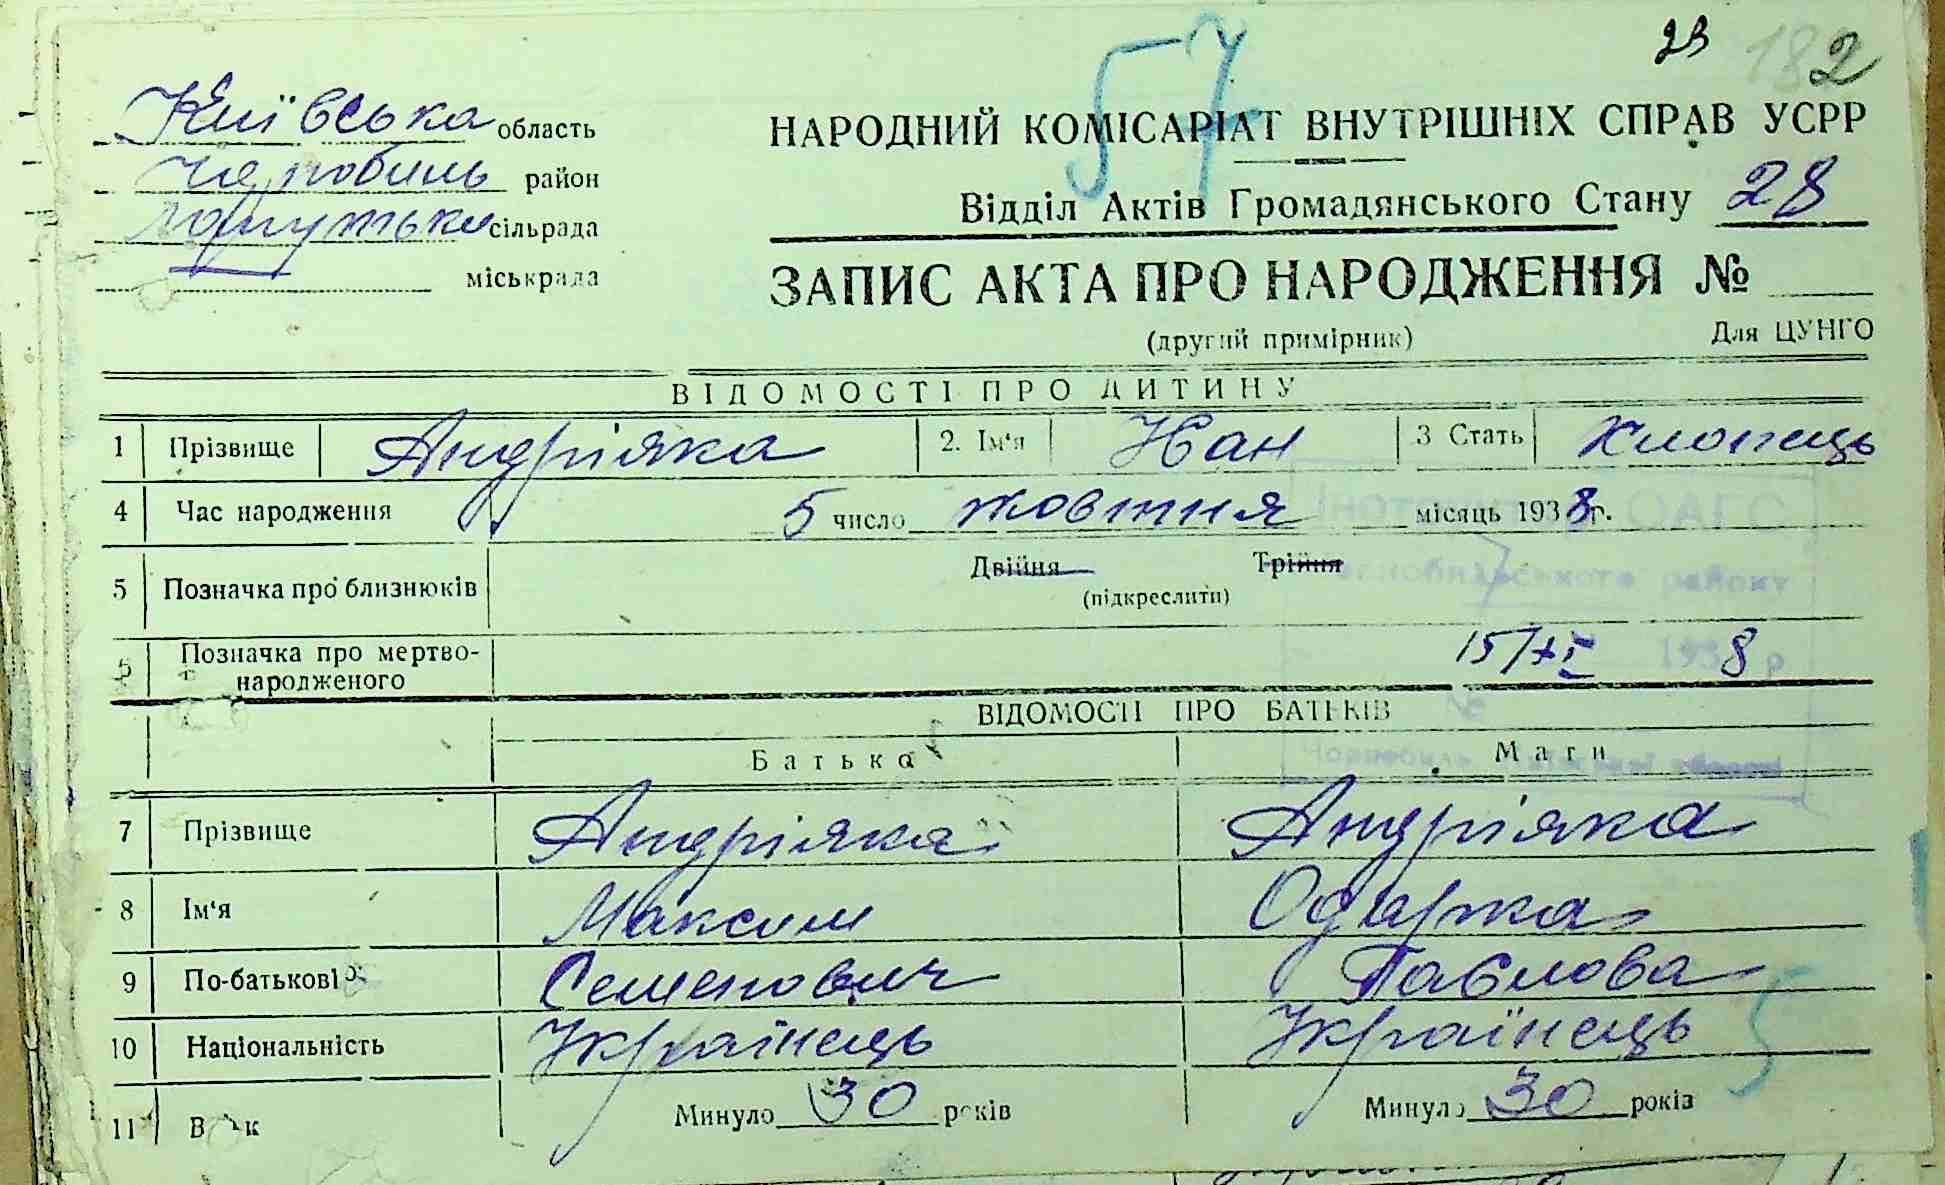 57
23
182
Київська область
Чернобиль район
сільрада
міськрада
НАРОДНИЙ КОМІСАРІАТ ВНУТРІШНІХ СПРАВ УСРР
Відділ Актів Громадянського Стану 28
ЗАПИС АКТА ПРО НАРОДЖЕННЯ №
(другий примірник) Для ЦУНГО
ВІДОМОСТІ ПРО ДИТИНУ
1 Прізвище Андріяка 2. Ім'я Іван 3 Стать Хлопець
4 Час народження 5 число жовтня місяць 1938 г.
5 Позначка про близнюків Двійня Трійня
(підкреслити)
6 Позначка про мертво-
народженого
15/XI 1938 р
ВІДОМОСТІ ПРО БАТЬКІВ
Батько Мати
7 Прізвище Андріяка Андріяка
8 Ім'я Максим Одарка
9 По-батькові Семенович Павлова
10 Національність Українець Українець
11 Вік Минуло 30 років Минуло 30 років